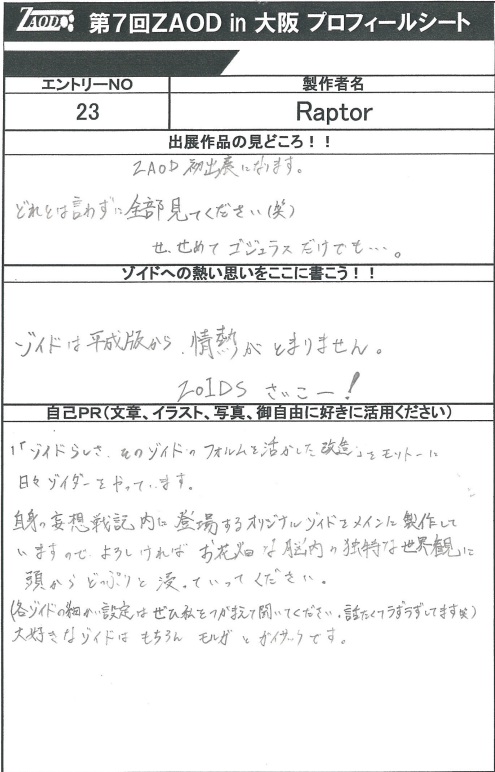 ZAOD 第7回ZAOD in 大阪 プロフィールシート
エントリーNO 製作者名
23 Raptor
出展作品の見どころ！！
ZAOD 初出展になります。
どれとは言わずに全部見てください(笑)
せ、せめて ゴジュラスだけでも…。
ゾイドへの熱い思いをここに書こう！！
ゾイドは平成版から、情熱がとまりません。
ZOIDS さいこー！
自己PR(文章、イラスト、写真、御自由に好きに活用ください)
「ゾイドらしさ、そのゾイドのフォルムを活かした改造」をモットーに
日々ゾイダーをやっています。
自身の妄想戦記内に登場するオリジナルゾイドをメインに製作して
いますので、よろしければ お花畑な脳内の独特な世界観に
頭からどっぷりと浸っていってください。
(各ゾイドの細かい設定はぜひ私をつかまえて聞いてください。話たくてうずうずしてます笑)
大好きなゾイドは もちろん モルガ と ガイサックです。